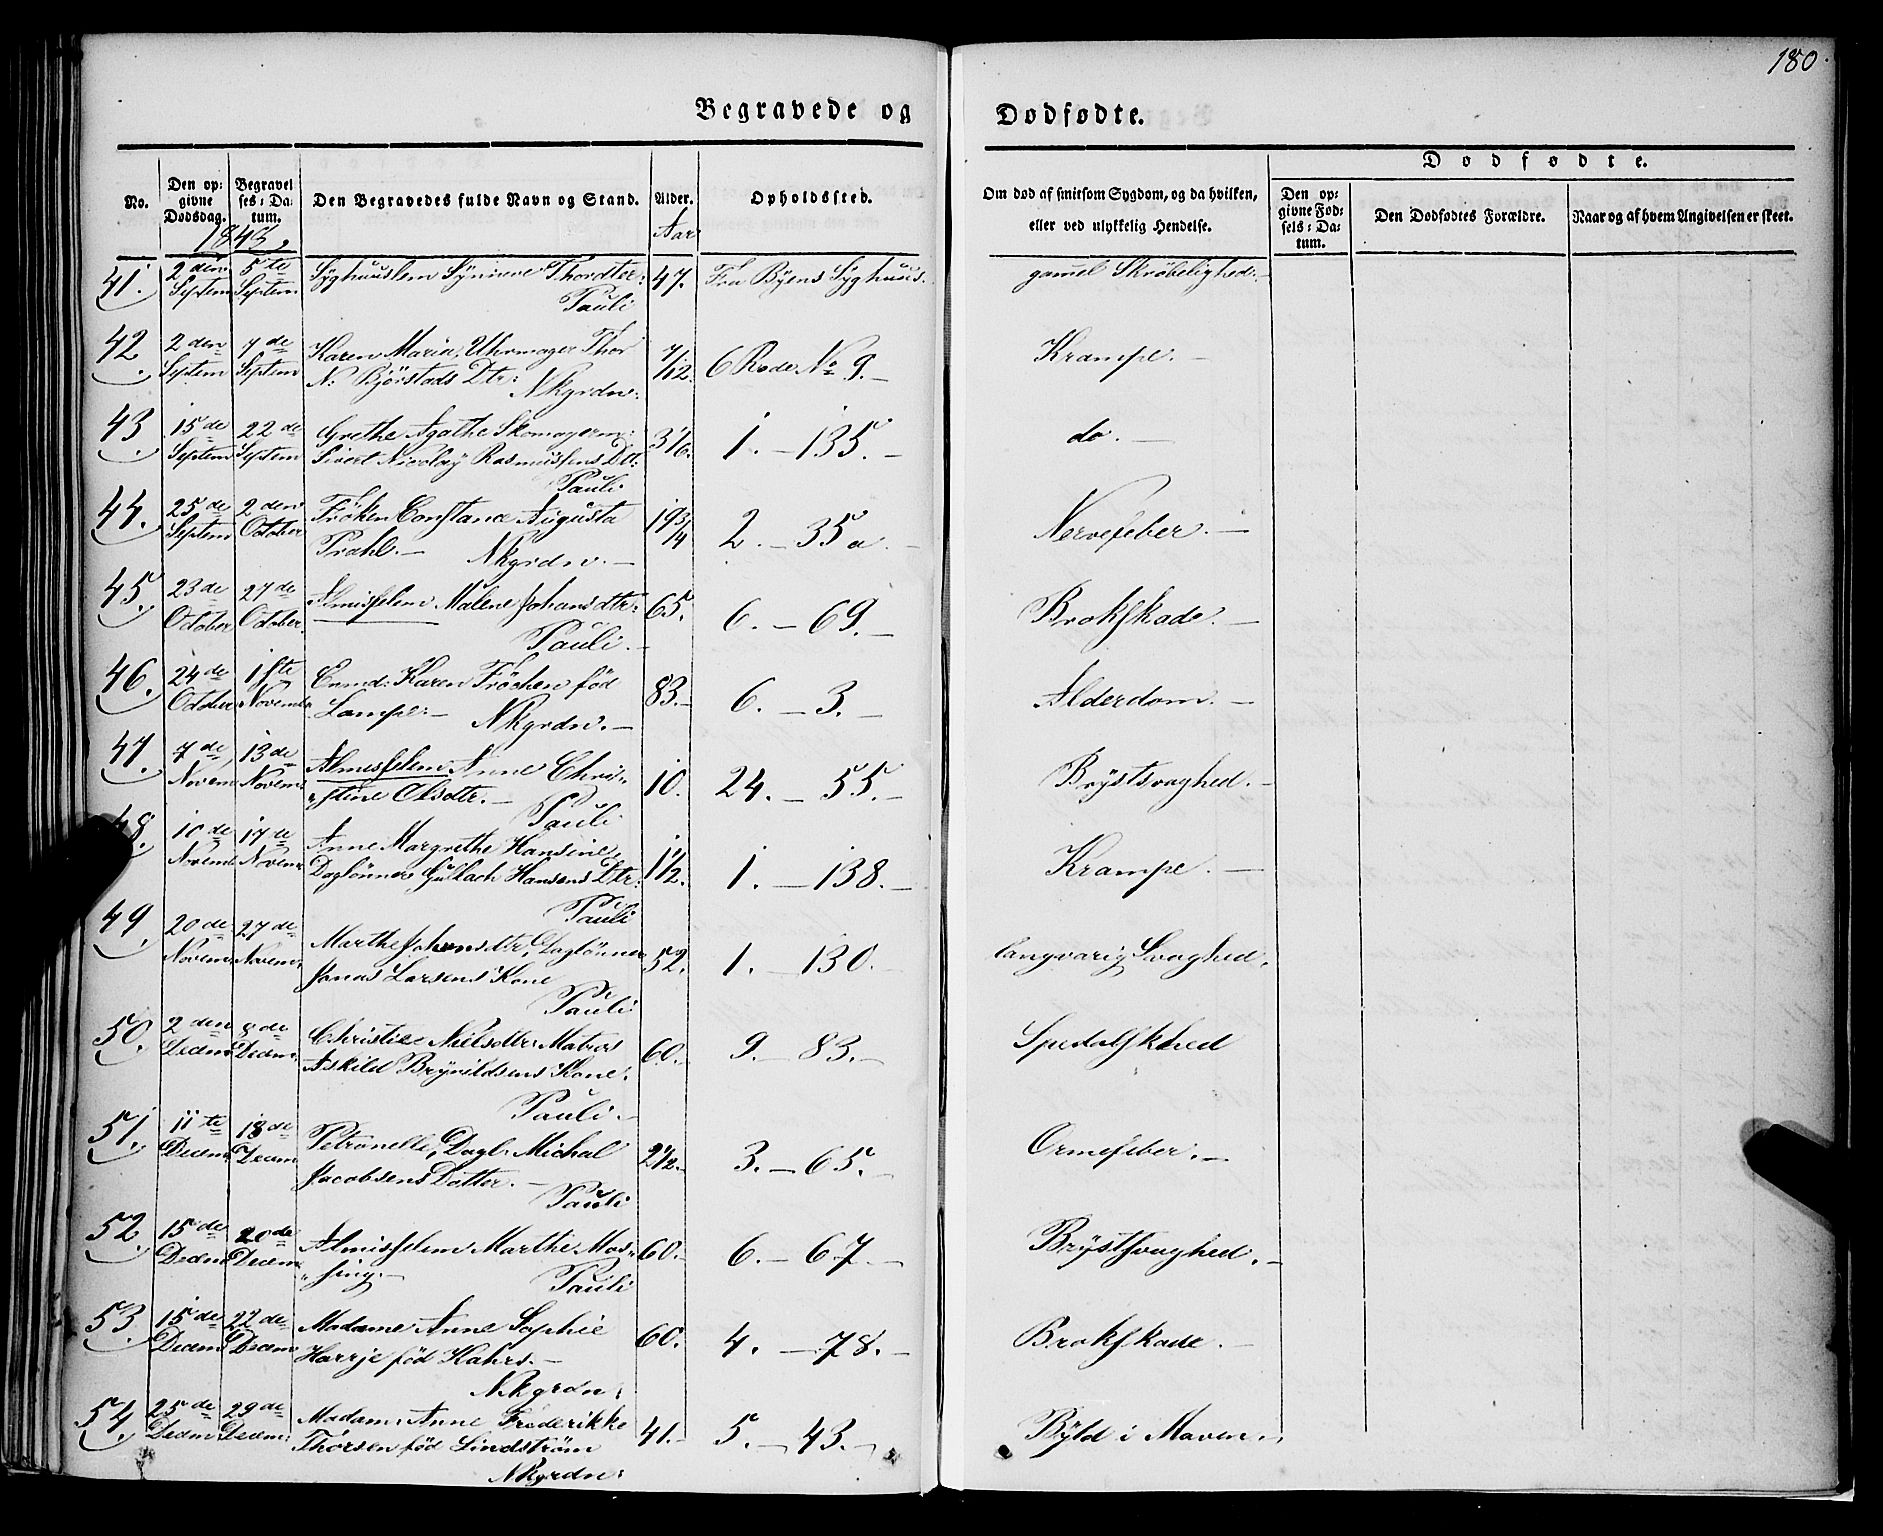 180.
Begravede og Dødfødte.
No.
Den opgivne Dødsdag.
Begravelses-Datum.
Den Begravedes fulde Navn og Stand.
Alder.
Opholdssted.
Om død af smitsom Sygdom, og da hvilken, eller ved ulykkelig Hendelse.
Dødfødte.
Den opgivne Fødsels-Datum.
Den Dødfødtes Forældre.
Naar og af hvem Angivelsen er skeet.
1843,
Aar
41. 2den Septem 5te Septem Syghuuslem Synneve Thordtr: 47. Fra Byens Syghuus. gamel Skrøbelighed.-
Pauli
42. 2den Septem 7de Septem Karen Maria, Uhrmager Thor 7/12. 6 Rode No 9.- Krampe.-
N: Bjørstads Dtr: Nkgrdn:
43. 15de Septem 22de Septem Grethe Agathe Skomagerm: 3 1/6. 1.-135.- do.-
Sivert Nicolay Rasmussens Dtr:
Pauli
44. 25de Septem 2den October Frøken Constance Augusta 19 3/4 2.-35a.- Nervefeber.-
Prahl.- Nkgrdn.-
45. 23de October 27de October. Almisselem Malene Johansdtr: 65. 6.-69.- Brokskade.-
Pauli.-
46. 24de October 1ste Novembr Enmd: Karen Frøchen fød 83.- 6.-3.- Alderdom.-
Lampe.- Nkgrdn.-
47. 7de Novem 13de Novem: Almisselem Anne Chri- 10. 24.-55.- Brystsvaghed.-
-stine Olsdtr.-
Pauli
48. 10de Novemb 17de Novem: Anne Margrethe Hansine, 1 1/2. 1.-138.- Krampe.-
Daglønner Gullach Hansens Dtr:
Pauli
49. 20de Novem: 27de Novem: Marthe Johansdtr, Daglønner 52. 1.-130.- langvarig Svaghed.
Jonas Larsens Kone
Pauli
50. 2den Decem: 8de Decem: Christie Nielsdtr: Matros 60.- 9.-83.- Spedalskhed
Askild Brynildsens Kone.
Pauli.-
51. 11te Decem: 18de Decem Petronelle, Dagl: Michal 2 1/2.- 3.-65.- Ormefeber.-
Jacobsens Datter.-
Pauli
52. 15de Decem: 20de Decem: Almisselem Marthe Mas- 60.- 6.-67.- Brystsvaghed.-
-sing.- Pauli
53. 15de Decem 22de Decem Madame Anne Sophie 60. 4.-78.- Brokskade.-
Harrje fød Kahrs.-
Nkgrdn:
54. 25de Decem: 29de Decem: Madam: Anne Frederikke 41.- 5.-43.- Byld i Maven.-
Thorsen fød Lindstrøm
Nkgrdn: